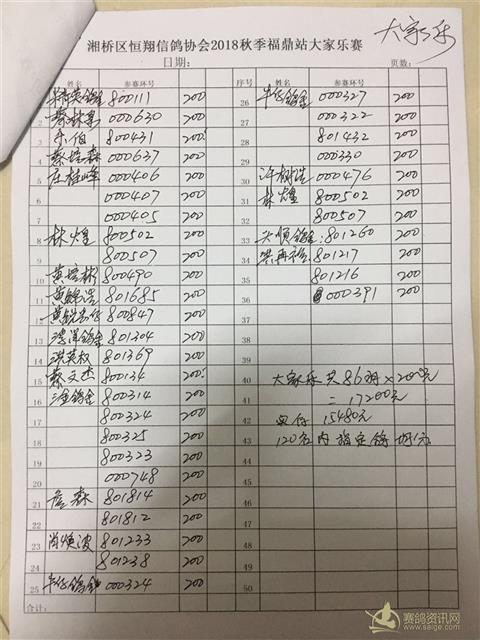 大家乐
湘桥区恒翔信鸽协会2018秋季福鼎站大家乐赛
日期： 页数：
姓名 参赛环号 序号 姓名 参赛环号
800111 200 26 000327 200
2 000630 200 27 000322 200
3 800431 200 28 801432 200
4 蔡 森 000637 200 29 000330 200
5 庄桂峰 000406 200 30 000476 200
6 000407 200 31 林煌 800502 200
7 000405 200 32 800507 200
8 林煌 800502 200 33 801260 200
9 800507 200 34 801217 200
10 黄 彬 800490 200 35 801216 200
11 黄 浩 801685 200 36 000391 200
12 黄 800847 200 37
13 801304 200 38
14 洪英权 801369 200 39
15 蔡文杰 800134 200 40 大家乐共86羽×200元
16 000314 200 41 =17200元
17 800324 200 42 15480元
18 800325 200 43 120名内指定鸽
19 800323 200 44
20 000748 200 45
21 森 801814 200 46
22 801812 200 47
23 肖焕波 801233 200 48
24 801238 200 49
25 000324 200 50
合计：
赛鸽资讯网
www.saige.com